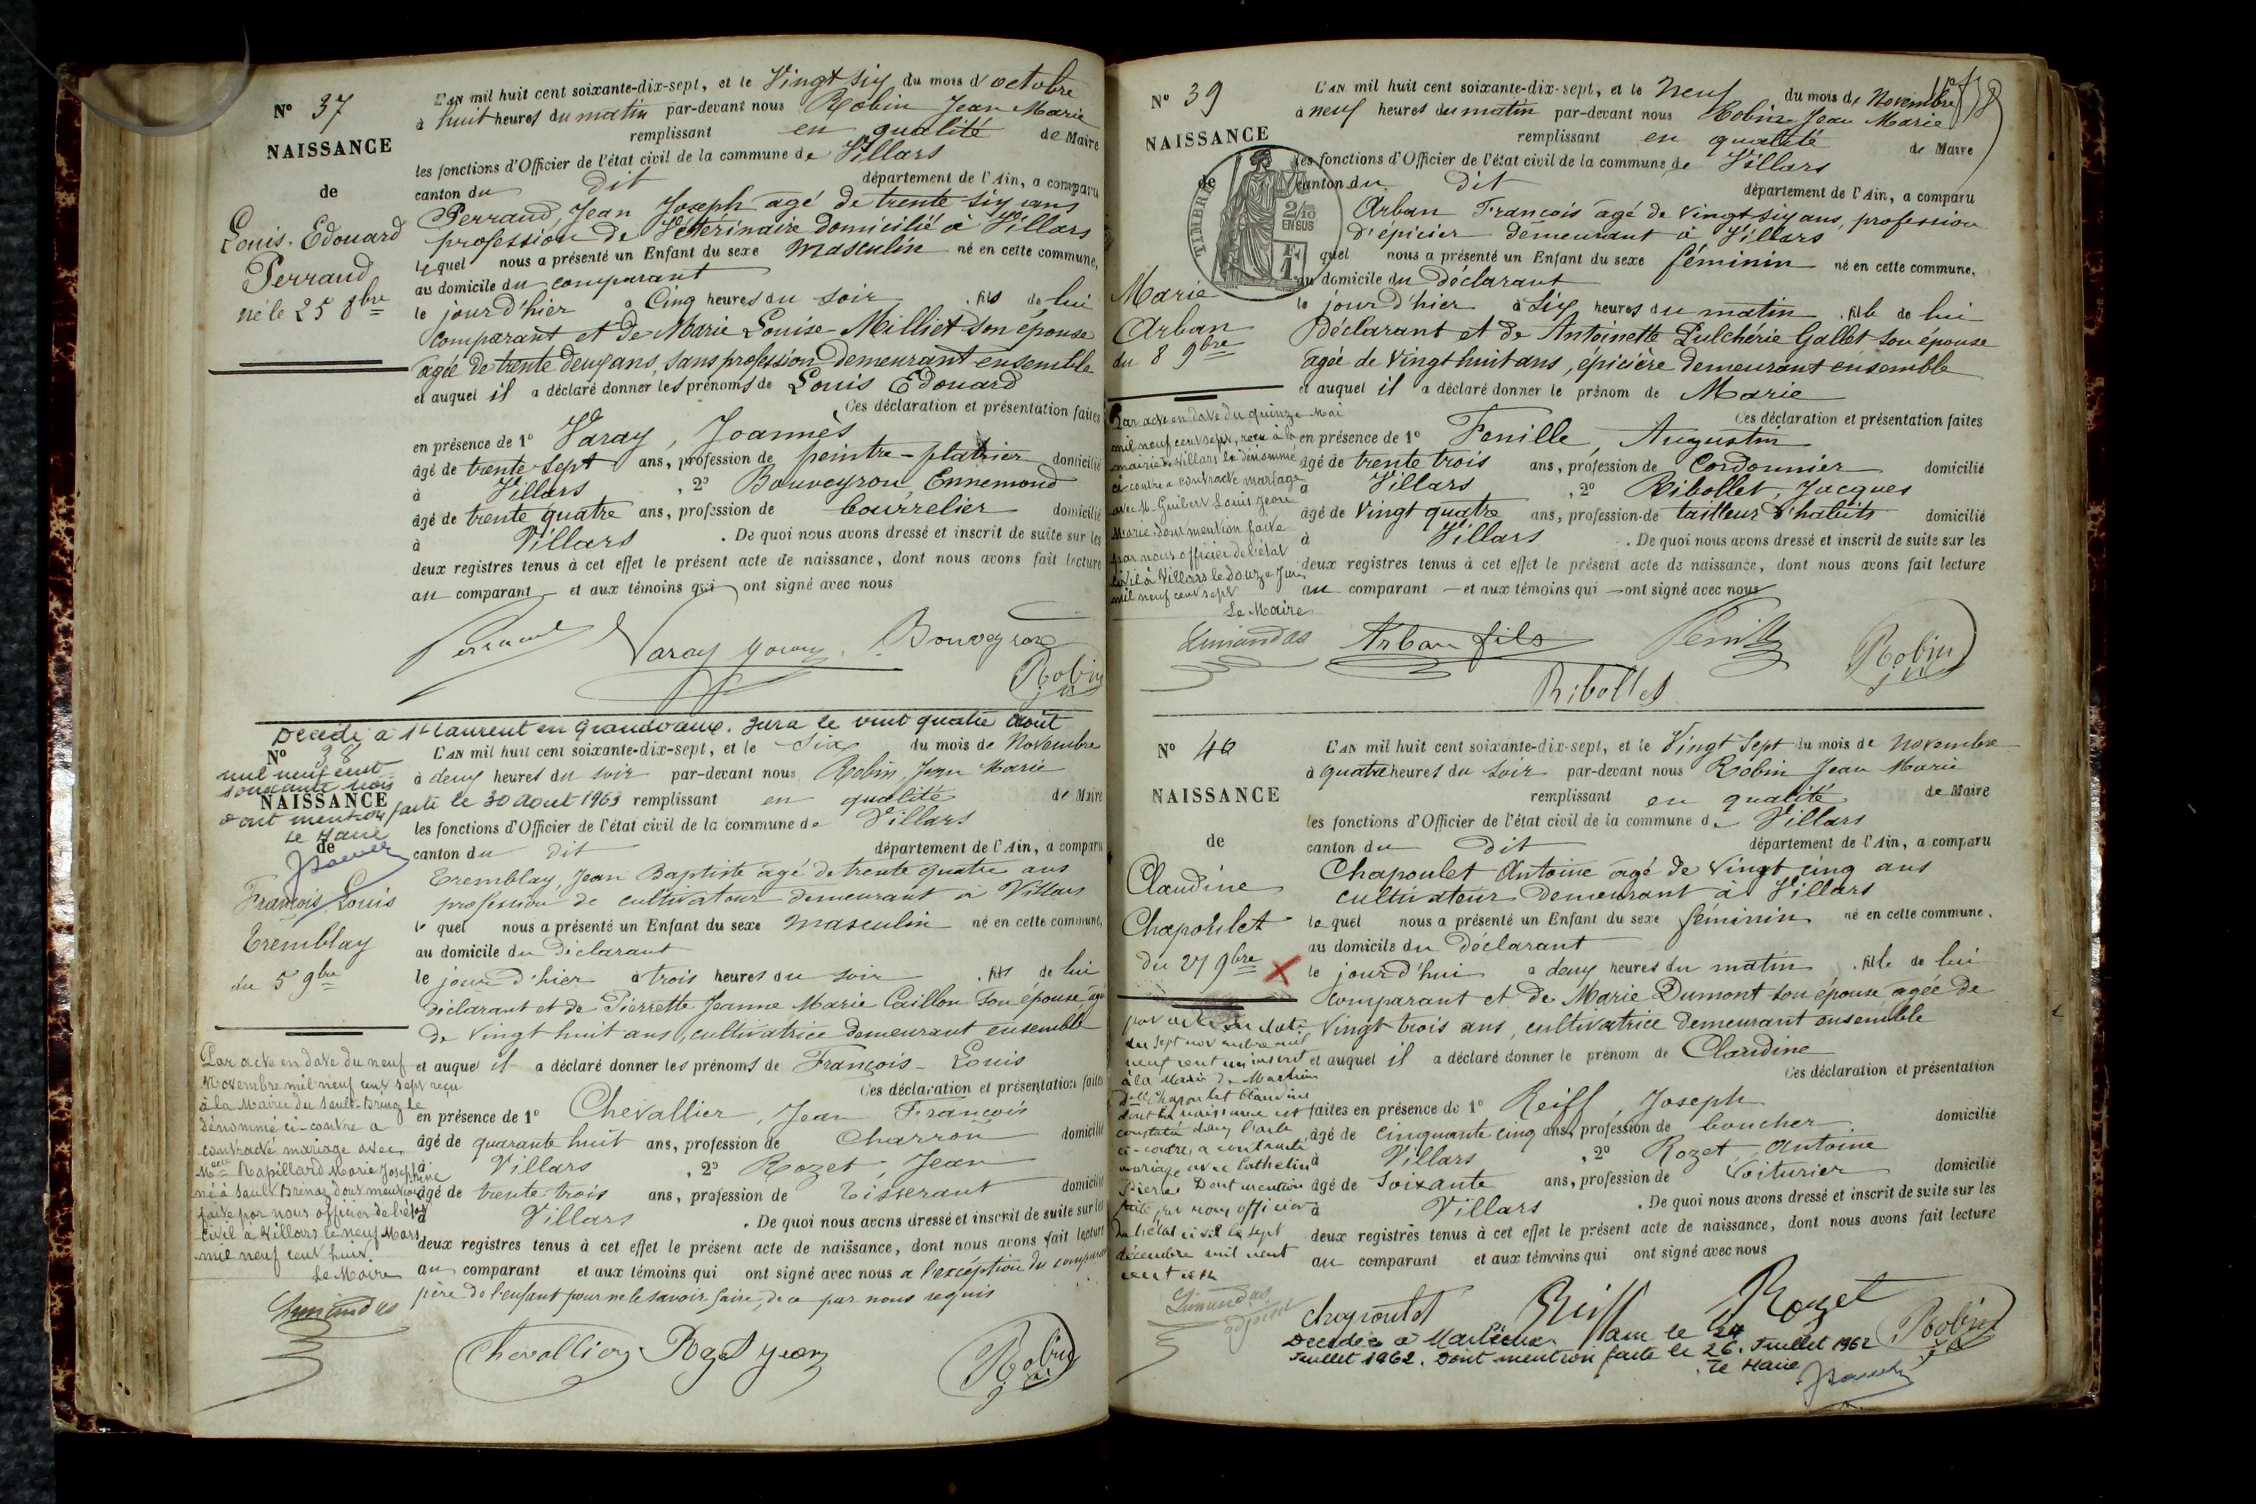 N° 37
NAISSANCE
de
Louis Edouard
Perraud
né le 25 8bre
L'AN mil huit cent soixante-dix-sept, et le Vingt six du mois d'octobre
à huit heures du matin par-devant nous Robin Jean Marie
remplissant en qualité de Maire
les fonctions d'Officier de l'état civil de la commune de Villars
canton du dit département de l'Ain, a comparu
Perraud, Jean Joseph agé de trente six ans
profession de Vétérinaire domicilié à Villars
lequel nous a présenté un Enfant du sexe masculin né en cette commune,
au domicile du comparant
le jour d'hier à Cinq heures du soir, fils de lui
comparant et de Marie Louise Milliet son épouse
agée de trente deux ans, sans profession demeurant ensemble
et auquel il a déclaré donner les prénoms de Louis Edouard
Ces déclaration et présentation faites
en présence de 1° Varay, Joannès
âgé de trente sept ans, profession de peintre-platrier domicilié
à Villars, 2° Bouveyron Ennemond
âgé de trente quatre ans, profession de bourrelier domicilié
à Villars. De quoi nous avons dressé et inscrit de suite sur les
deux registres tenus à cet effet le présent acte de naissance, dont nous avons fait lecture
au comparant et aux témoins qui ont signé avec nous
Perraud Varay Bouveyron
Robin
Décédé à St Laurent en Grandvaux. Jura le vint quatre août
mil neuf cent
soixante trois
dont mention faite le 30 Aout 1963
Le Maire
N° 38
NAISSANCE
de
François Louis
Tremblay
du 5 9bre
L'AN mil huit cent soixante-dix-sept, et le Six du mois de Novembre
à deux heures du soir par-devant nous Robin, Jean Marie
remplissant en qualité de Maire
les fonctions d'Officier de l'état civil de la commune de Villars
canton du dit département de l'Ain, a comparu
Tremblay, Jean Baptiste agé de trente quatre ans
profession de cultivateur demeurant à Villars
lequel nous a présenté un Enfant du sexe masculin né en cette commune,
au domicile du Déclarant
le jour d'hier à trois heures du soir, fils de lui
déclarant et de Pierrette Jeanne Marie Caillon son épouse agée
de vingt huit ans, cultivatrice demeurant ensemble
et auquel il a déclaré donner les prénoms de François-Louis
Ces déclaration et présentation faites
en présence de 1° Chevallier, Jean François
âgé de quarante huit ans, profession de Charron domicilié
à Villars, 2° Rozet, Jean
âgé de trente trois ans, profession de Tisserant domicilié
à Villars. De quoi nous avons dressé et inscrit de suite sur les
deux registres tenus à cet effet le présent acte de naissance, dont nous avons fait lecture
au comparant et aux témoins qui ont signé avec nous a l'exception du comparant
père de l'enfant pour ne le savoir faire, de ce par nous requis
Chevallier Rozet jean Robin
Par acte en date du neuf
Novembre mil neuf cent sept reçu
à la Mairie du Sault-Brénaz le
dénommé ci-contre a
contracté mariage avec
Melle Rapillard Marie Joséphine
né à Sault Brénaz dont mention
faite par nous officier de l'état
civil à Villars le neuf Mars
mil neuf cent huit
Le Maire
N° 39
NAISSANCE
de
TIMBRE
2/10 EN SUS
Marie
Arban
du 8 9bre
L'AN mil huit cent soixante-dix-sept, et le Neuf du mois de Novembre
à neuf heures du matin par-devant nous Robin Jean Marie
remplissant en qualité de Maire
les fonctions d'Officier de l'état civil de la commune de Villars
canton du dit département de l'Ain, a comparu
Arban François agé de vingt six ans, profession
d'épicier demeurant à Villars
quel nous a présenté un Enfant du sexe féminin né en cette commune,
au domicile du Déclarant
le jour d'hier à Six heures du matin, fille de lui
Déclarant et de Antoinette Pulchérie Gallet son épouse
agée de vingt huit ans, épicière demeurant ensemble
et auquel il a déclaré donner le prénom de Marie
Ces déclaration et présentation faites
en présence de 1° Fenille, Augustin
âgé de trente trois ans, profession de Cordonnier domicilié
à Villars, 2° Ribollet, Jacques
âgé de Vingt quatre ans, profession de tailleur d'habits domicilié
à Villars. De quoi nous avons dressé et inscrit de suite sur les
deux registres tenus à cet effet le présent acte de naissance, dont nous avons fait lecture
au comparant et aux témoins qui ont signé avec nous
Arban fils Fenille Robin
Ribollet
Par acte en date du quinze Mai
mil neuf cent sept, reçu à la
mairie de Villars la dénommé
ci-contre a contracté mariage
avec M. Guibert Louis Jean
Marie dont mention faite
par nous officier de l'état
civil à Villars le douze Juin
mil neuf cent sept
Le Maire
N° 40
NAISSANCE
de
Claudine
Chapoulet
du 27 9bre
L'AN mil huit cent soixante-dix-sept, et le Vingt Sept du mois de Novembre
à quatre heures du soir par-devant nous Robin Jean Marie
remplissant en qualité de Maire
les fonctions d'Officier de l'état civil de la commune de Villars
canton du dit département de l'Ain, a comparu
Chapoulet Antoine agé de Vingt cinq ans
cultivateur demeurant à Villars
lequel nous a présenté un Enfant du sexe féminin né en cette commune,
au domicile du déclarant
le jour d'hui à deux heures du matin, fille de lui
comparant et de Marie Dumont son épouse agée de
vingt trois ans, cultivatrice demeurant ensemble
et auquel il a déclaré donner le prénom de Claudine
Ces déclaration et présentation
faites en présence de 1° Reiff, Joseph
âgé de cinquante cinq ans, profession de boucher domicilié
à Villars, 2° Rozet, Antoine
âgé de Soixante ans, profession de Voiturier domicilié
à Villars. De quoi nous avons dressé et inscrit de suite sur les
deux registres tenus à cet effet le présent acte de naissance, dont nous avons fait lecture
au comparant et aux témoins qui ont signé avec nous
Chapoulet Reiff Rozet Robin
par acte en date
du sept novembre mil
neuf cent un inscrit
à la Mairie de
Delle Chapoulet Claudine
dont la naissance est
constatée dans l'acte
ci-contre, a contracté
mariage avec Cathelin
Pierre Dont mention
faite par nous officier
de l'état civil le sept
décembre mil neuf
cent
adjoint
Décédée à Marlieux Ain le 24
Juillet 1962. Dont mention faite le 26 Juillet 1962
Le Maire